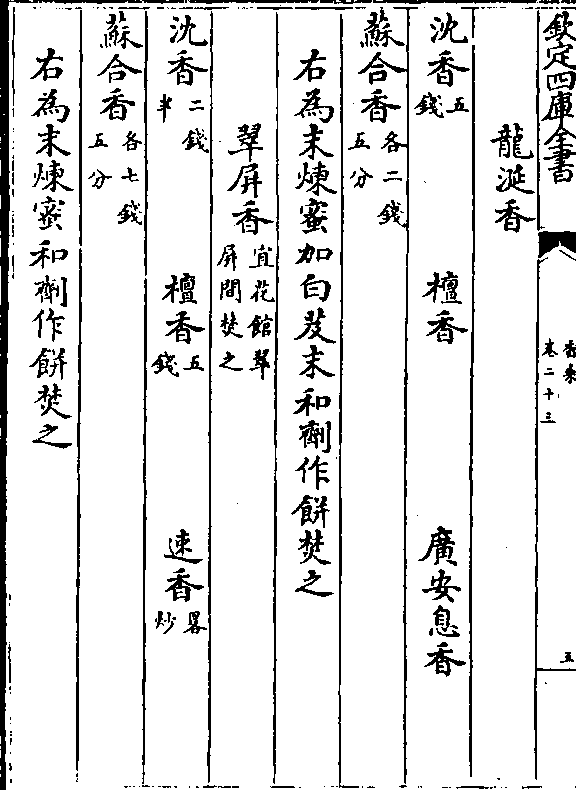 欽定四庫全書
香乘
卷二十三
五
龍涎香
沈香五錢 檀香 廣安息香
蘇合香各二錢五分
右為末煉蜜加白芨末和劑作餅焚之
翠屏香宜花館翠屏間焚之
沈香二錢半 檀香五錢 速香畧炒
蘇合香各七錢五分
右為末煉蜜和劑作餅焚之